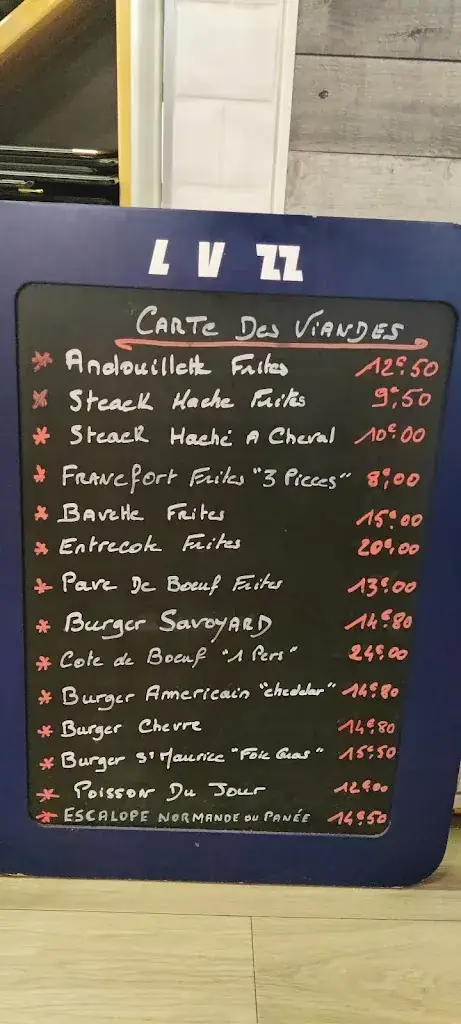 L V ZZ
CARTE Des VIANDES
* Andouillette Frites 12€50
* Steack Hache Frites 9€50
* Steack Haché A Cheval 10€00
* FRANCFORT Frites "3 Pieces" 8€00
* BAVette FRites 15€00
* Entrecote Frites 20€00
* Pave De Boeuf Frites 13€00
* Burger SAVOYARD 14€80
* Cote de Boeuf "1 Pers" 24€00
* Burger Americain "cheddar" 14€80
* Burger Chevre 14€80
* Burger St Maurice "Foie Gras" 15€50
* Poisson Du Jour 12€00
* ESCALOPE NORMANDE OU PANÉE 14€50